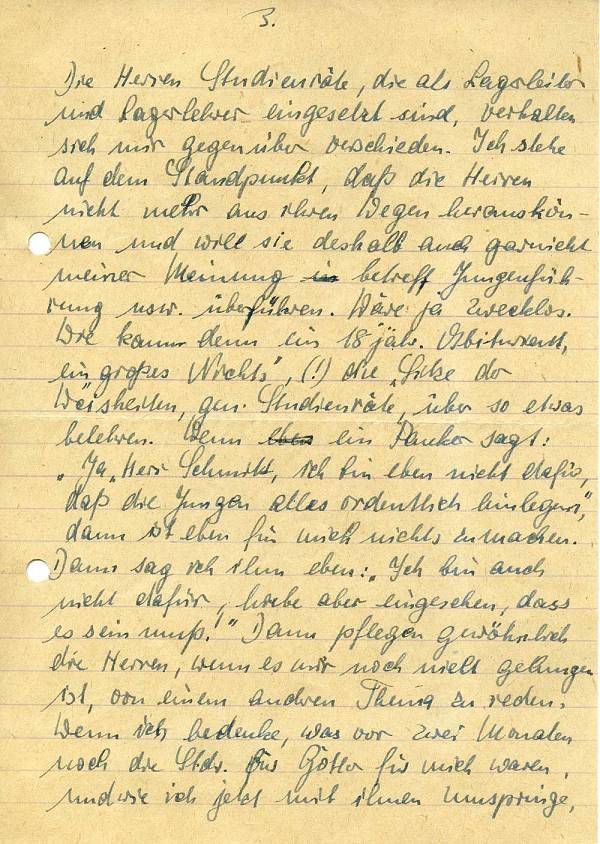 3.
Die Herren Studienräte, die als Lagerleiter
und Lagerlehrer eingesetzt sind, verhalten
sich mir gegenüber verschieden. Ich stehe
auf dem Standpunkt, daß die Herren
nicht mehr aus ihren Wegen herauskön-
nen und will sie deshalb auch garnicht
meiner Meinung in betreff Jungenfüh-
rung usw. überführen. Wäre ja zwecklos.
Wie kann denn ein 18 jähr. Abiturient,
„ein großes Nichts", (!) die „Säke der
Weisheiten, gen. Studienräte, über so etwas
belehren. Wenn eben ein Pauker sagt:
„Ja, Herr Schmidt, ich bin eben nicht dafür,
daß die Jungen alles ordentlich hinlegen",
dann ist eben für mich nichts zu machen.
Dann sag ich ihm eben: „Ich bin auch
nicht dafür, habe aber eingesehen, dass
es sein muß!" Dann pflegen gewöhnlich
die Herren, wenn es mir noch nicht gelungen
ist, von einem andren Thema zu reden.
Wenn ich bedenke, was vor zwei Monaten
noch die Stdr. für Götter für mich waren,
und wie ich jetzt mit ihnen umspringe,